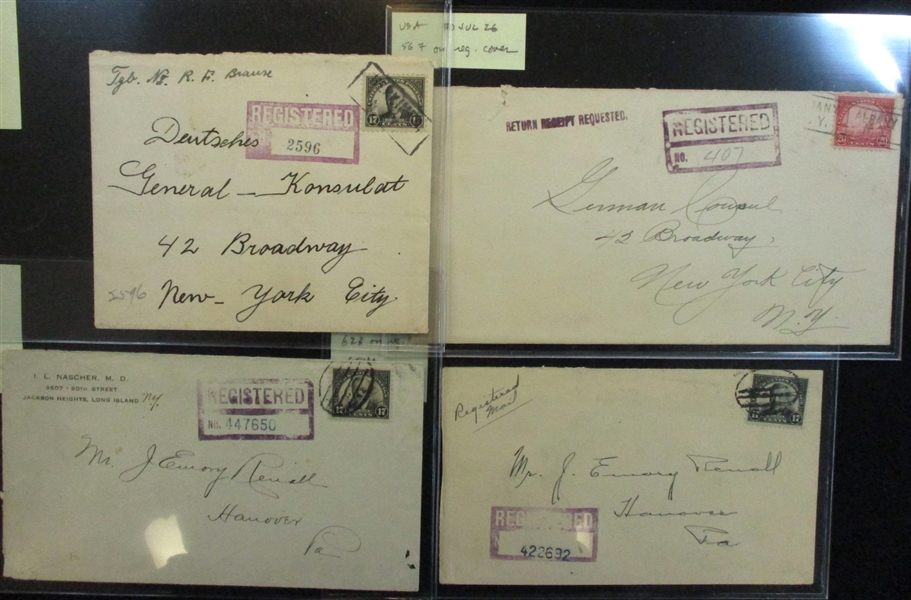 USA JUL 26
567 on reg. cover
Tgb. No. R. F. Brause
REGISTERED
2596
17
Deutsches
General - Konsulat
42 Broadway
New - York City
2596
RETURN RECEIPT REQUESTED.
REGISTERED
NO. 407
ALBANY
N. Y.
CENTS
German Consul
42 Broadway,
New York City
N. Y.
I. L. NASCHER, M. D.
JACKSON HEIGHTS, LONG ISLAND NY.
REGISTERED
NO. 447650
17 CENTS 17
Mr. J Emory Renoll
Hanover
Pa
623 on
Registered
Mail
17
Mr. J. Emory Renoll
Hanover
Pa
REGISTERED
422692